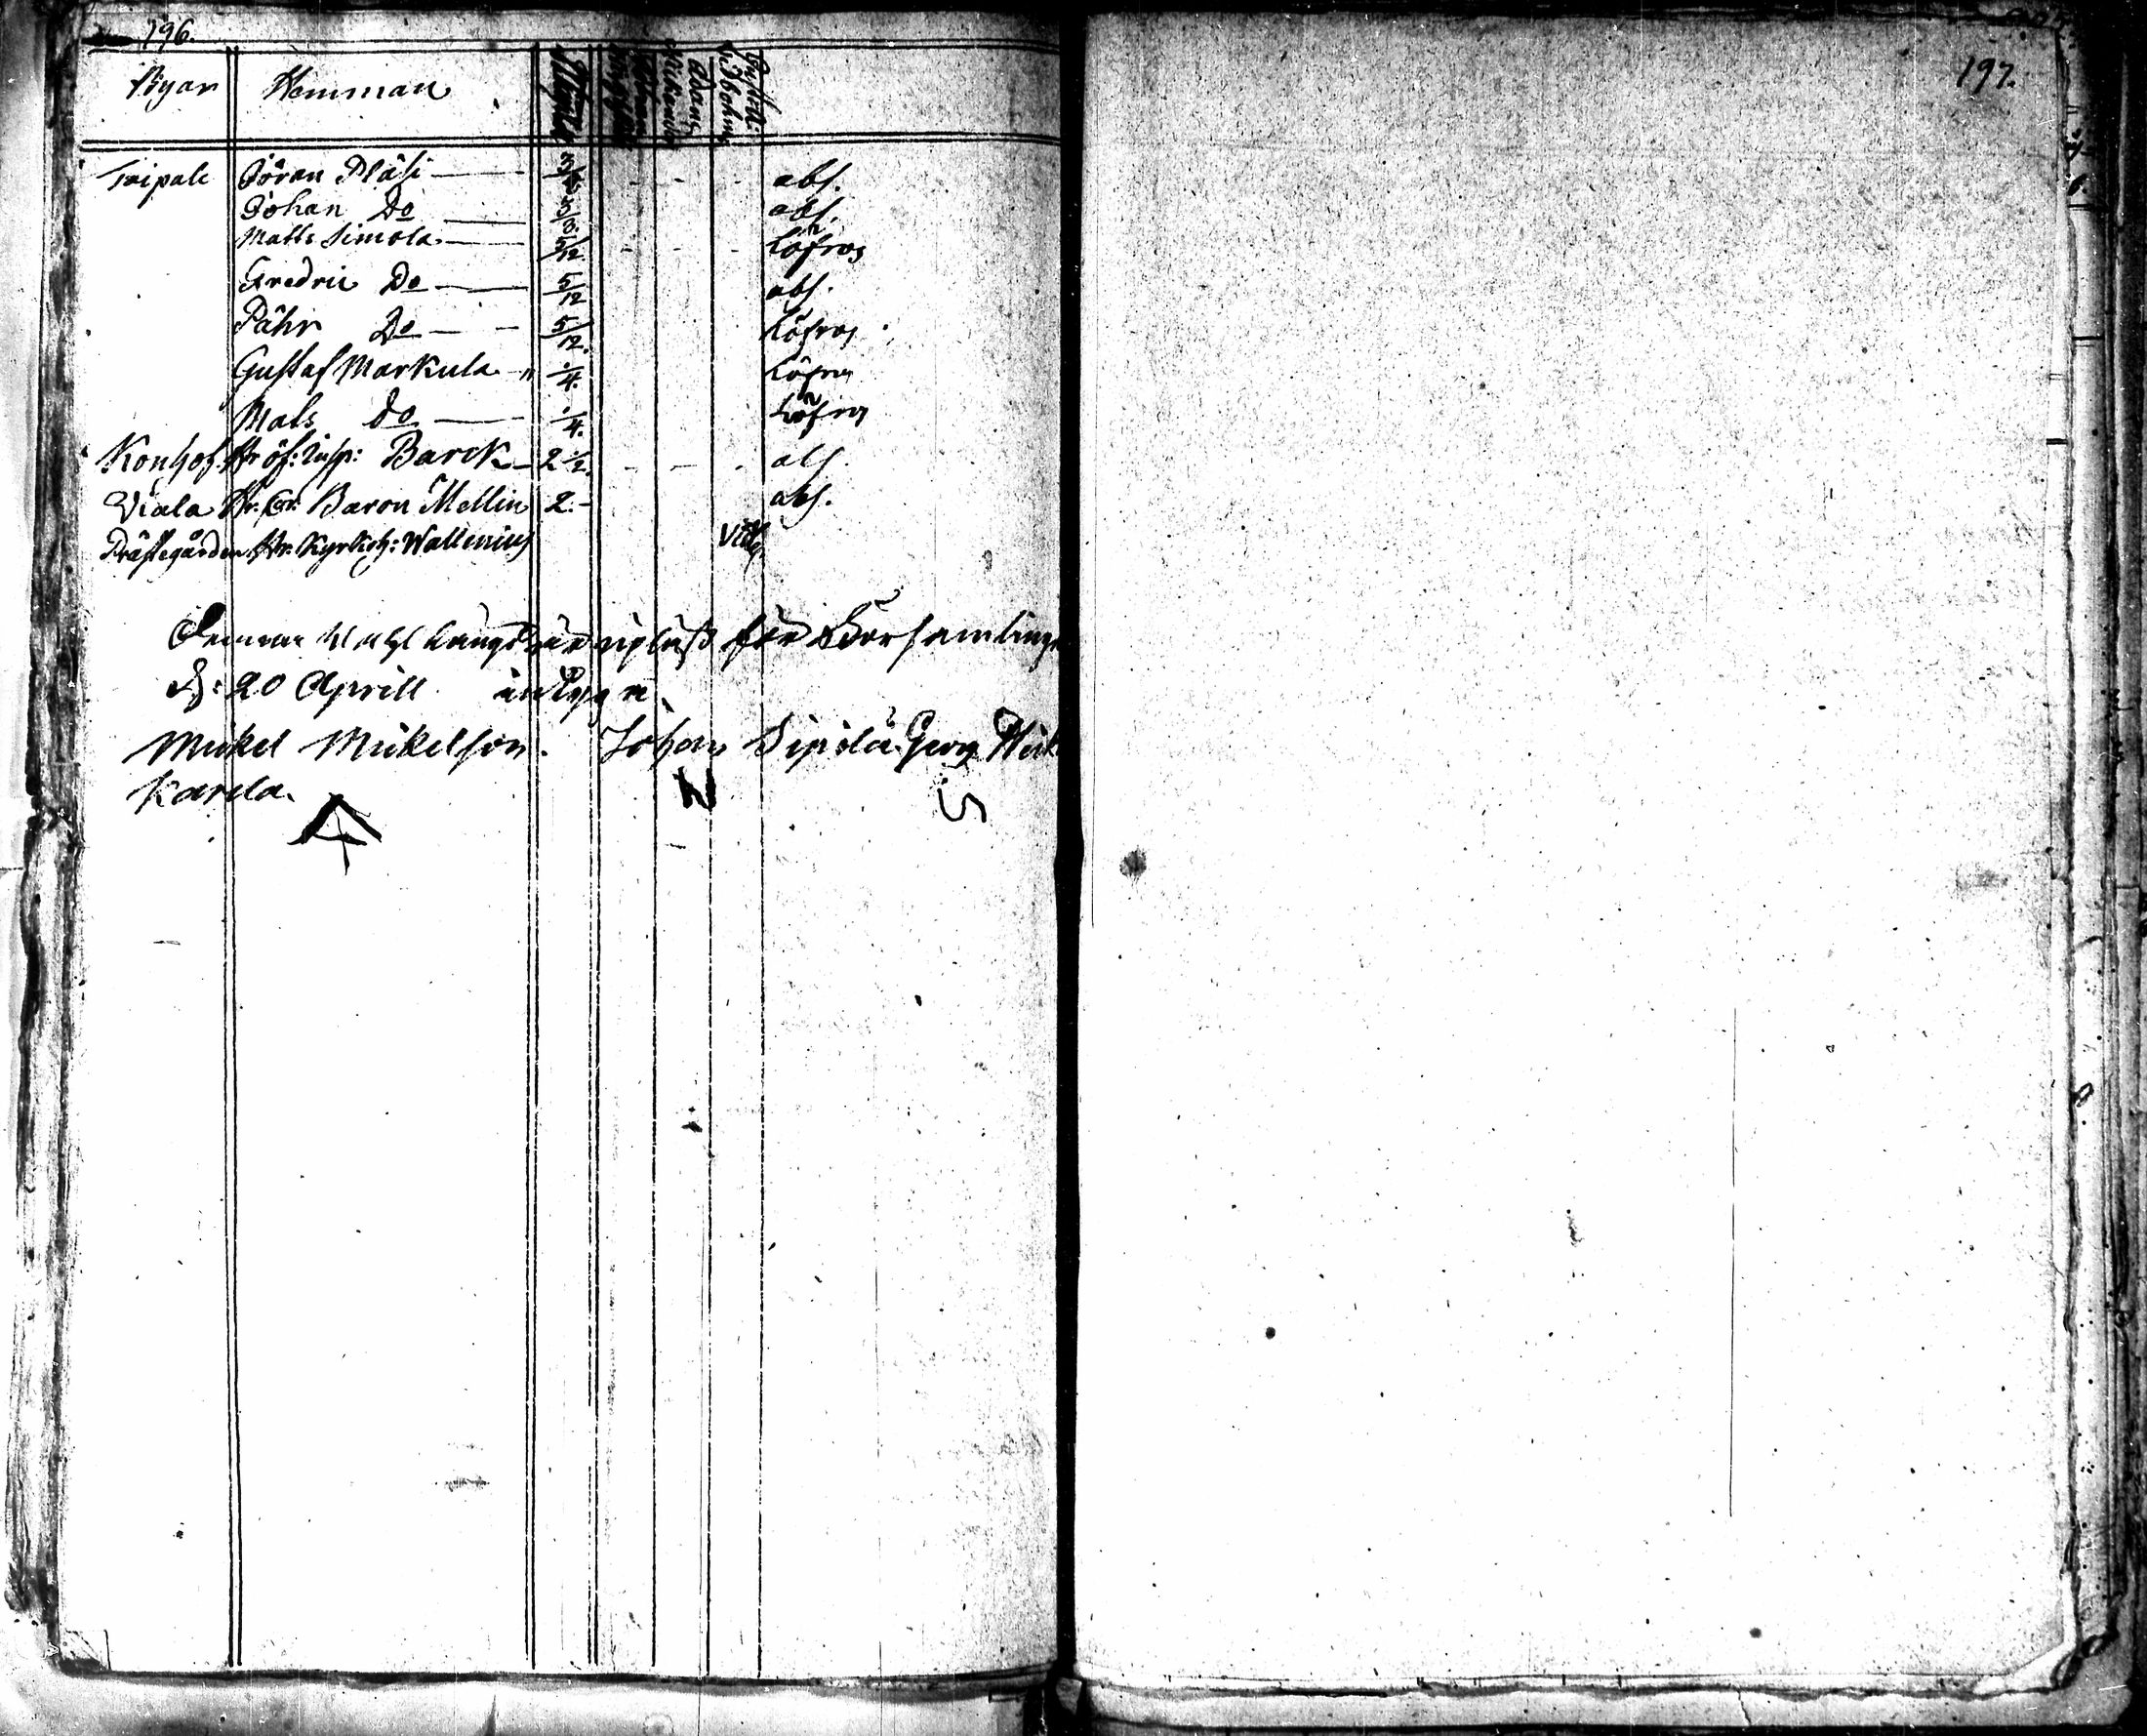 196.
Byar Hemman
Taipale Jöran Pläsi 3/8 abs.
Johan Do 3/8 abs.
Matts Simola 5/12 Löfros
Fredric Do 5/12 abs.
Påhr Do 5/12. Löfros
Gustaf Markula 1/4. Löfros
Mats do 1/4. Löfros
Konhof Hr öf: Insp: Barck 2 1/2. abs.
Viala Hr. Baron Mellin 2. abs.
Prästegården Hr. Kyrkoh: Wallenius
Denna Wahl Längd är upläst för Församlingen
d: 20 Aprill intyga
Mickel Mickelsson. Johan Sipilä. Georg
Karela.
197.